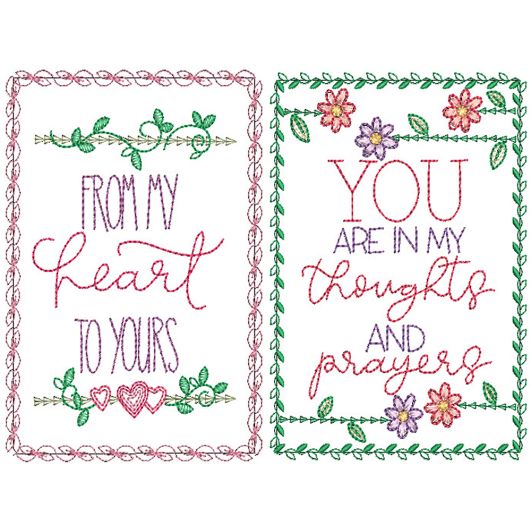 FROM MY
heart
TO YOURS
YOU
ARE IN MY
thoughts
AND
prayers